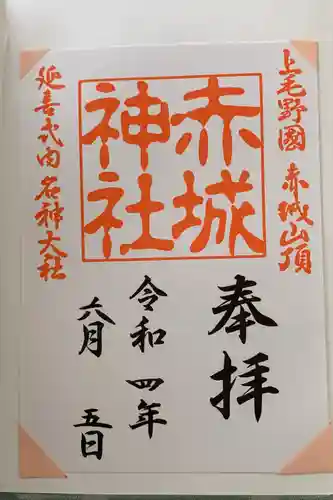 上毛野國 赤城山頂
奉拝
赤城
神社
令和四年
六月 五日
延喜式内名神大社